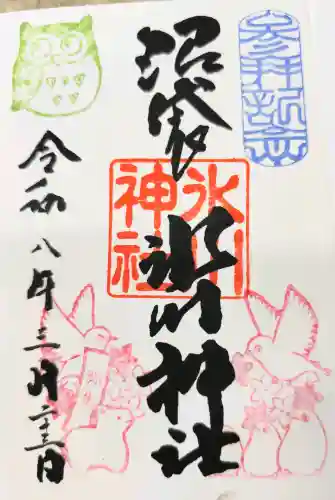 参拝記念
沼袋
氷川神社
氷川
神社
令和八年三月二十三日